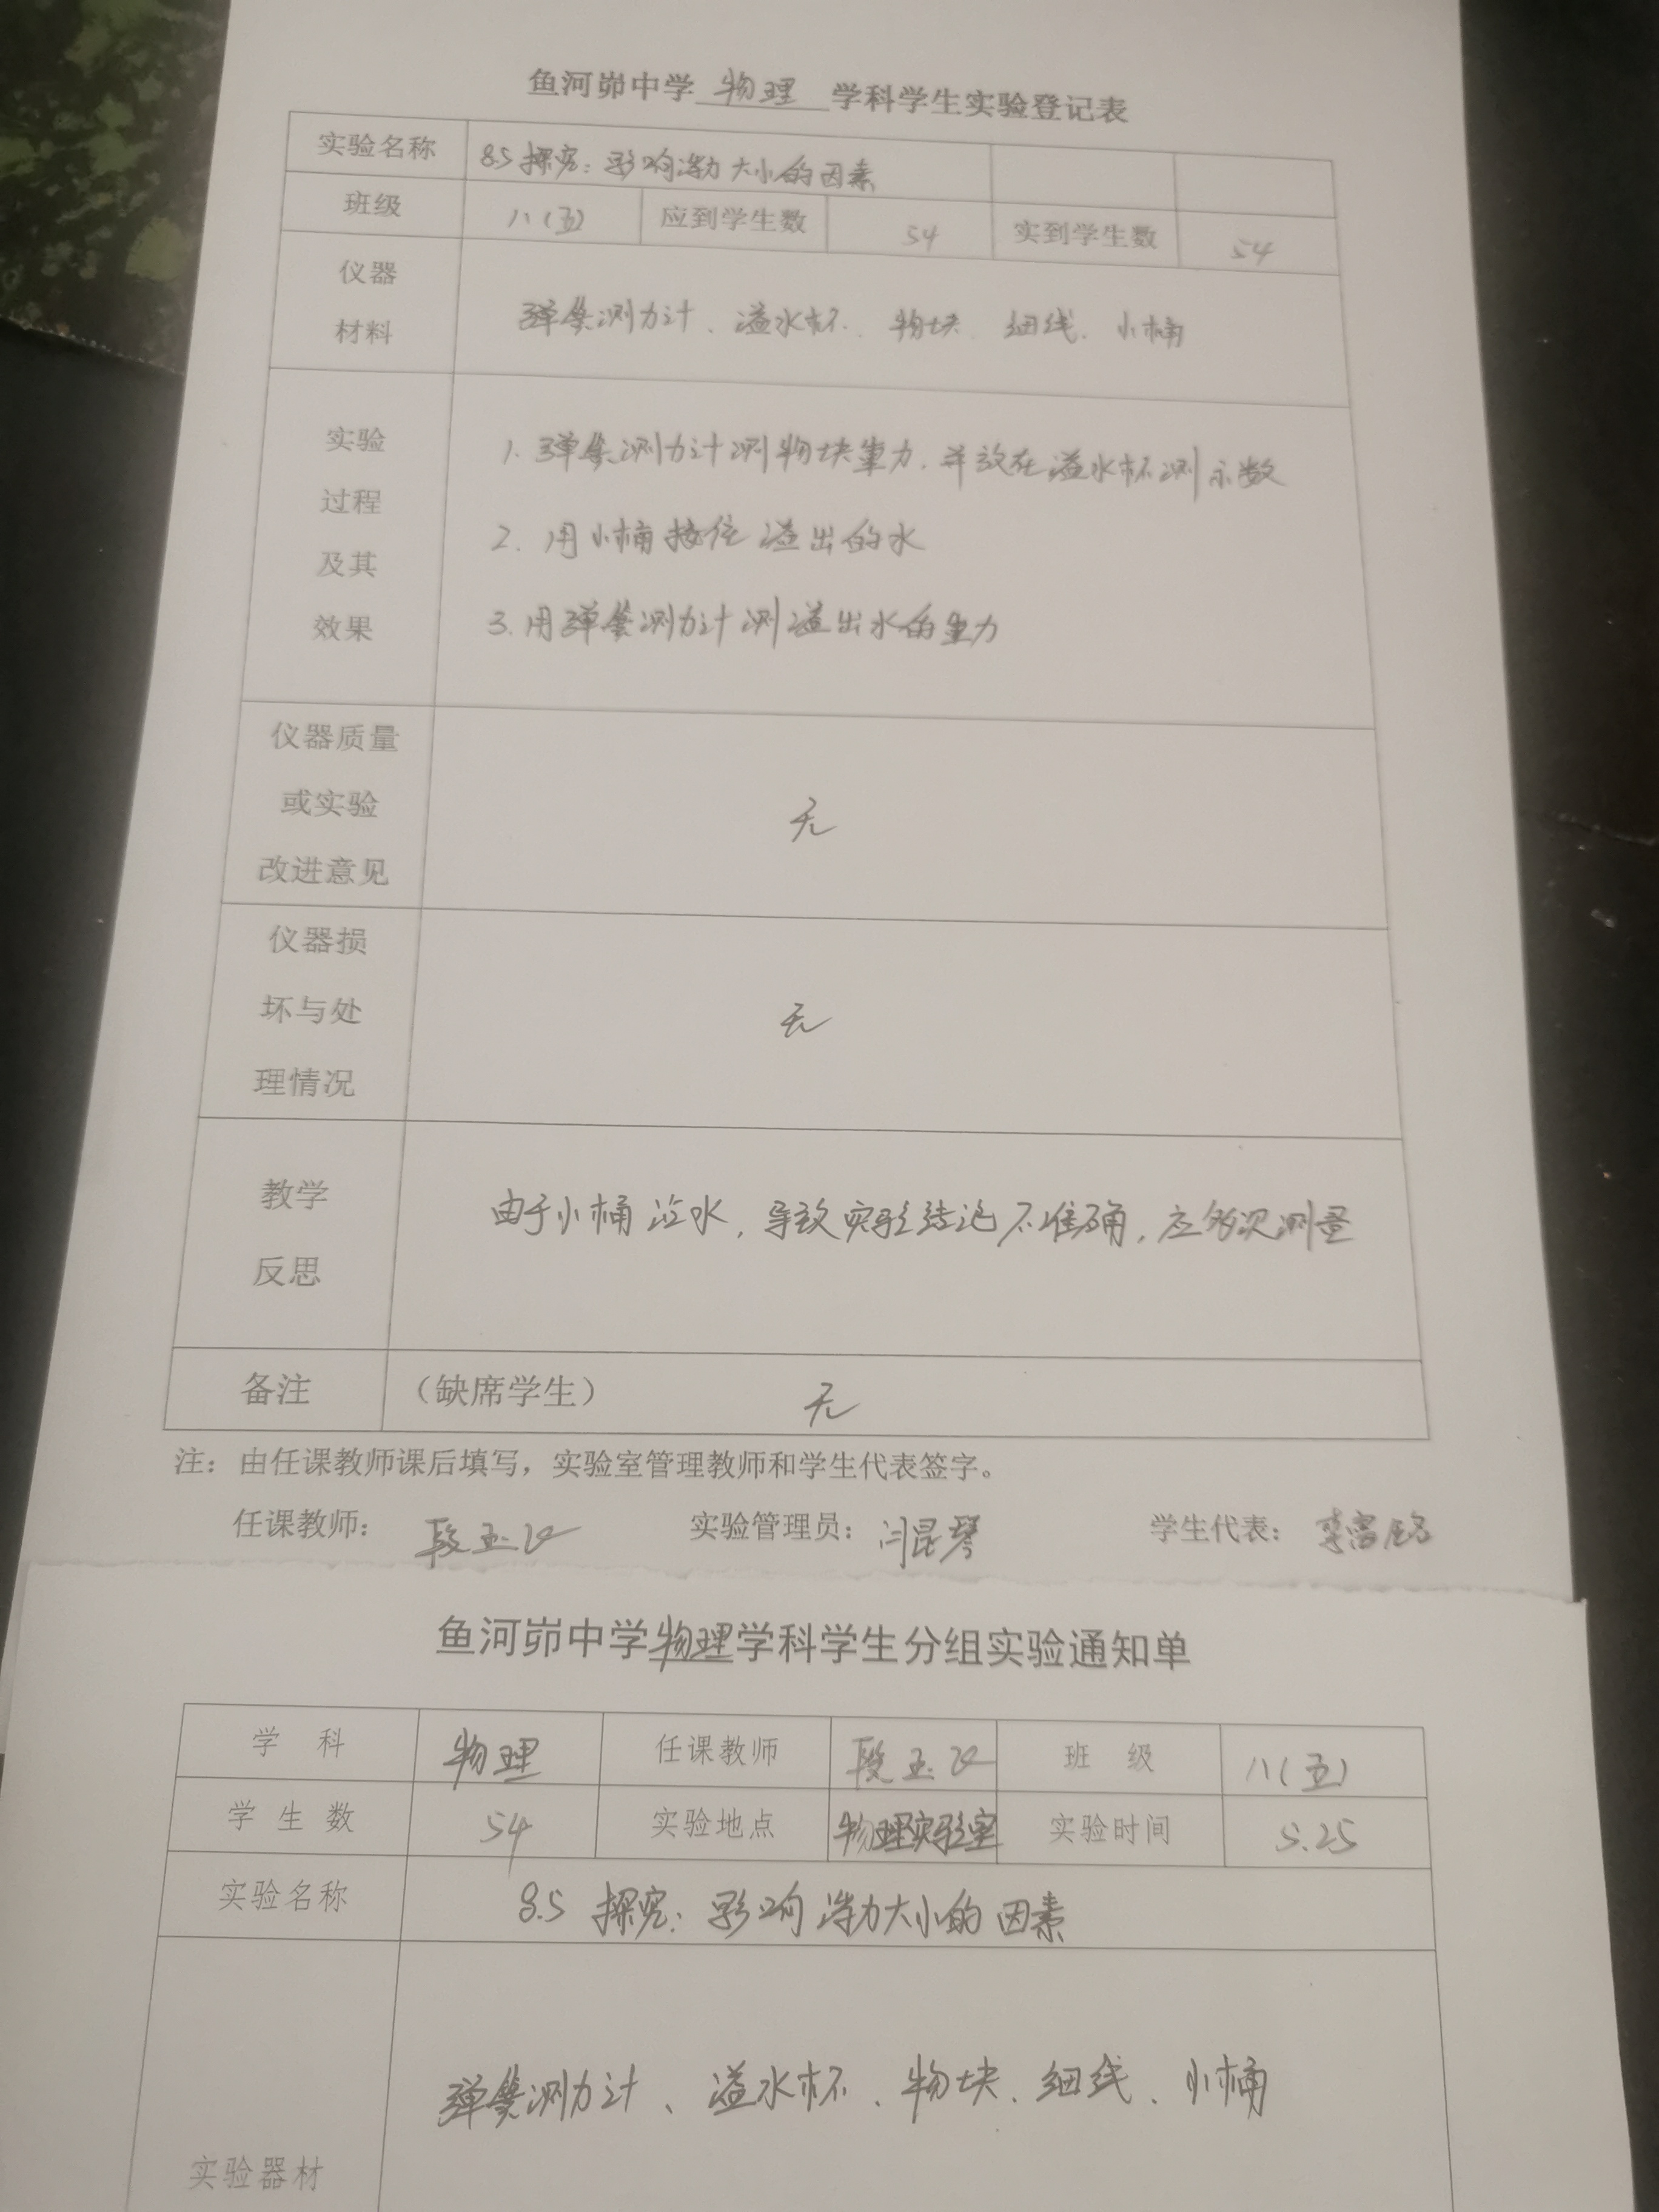 鱼河峁中学 物理 学科学生实验登记表
实验名称 8.5 探究：影响浮力大小的因素
班级 八（五） 应到学生数 54 实到学生数 54
仪器
材料
弹簧测力计、溢水杯、物块、细线、小桶
实验
过程
及其
效果
1. 弹簧测力计测物块重力，并放在溢水杯测示数
2. 用小桶接住溢出的水
3. 用弹簧测力计测溢出水的重力
仪器质量
或实验
改进意见
无
仪器损
坏与处
理情况
无
教学
反思
由于小桶沾水，导致实验结论不准确，应多次测量
备注 （缺席学生） 无
注：由任课教师课后填写，实验室管理教师和学生代表签字。
任课教师： 段玉 实验管理员： 闫昆琴 学生代表： 李
鱼河峁中学物理学科学生分组实验通知单
学 科 物理 任课教师 段玉 班 级 八（五）
学 生 数 54 实验地点 物理实验室 实验时间 5.25
实验名称 8.5 探究：影响浮力大小的因素
弹簧测力计、溢水杯、物块、细线、小桶
实验器材